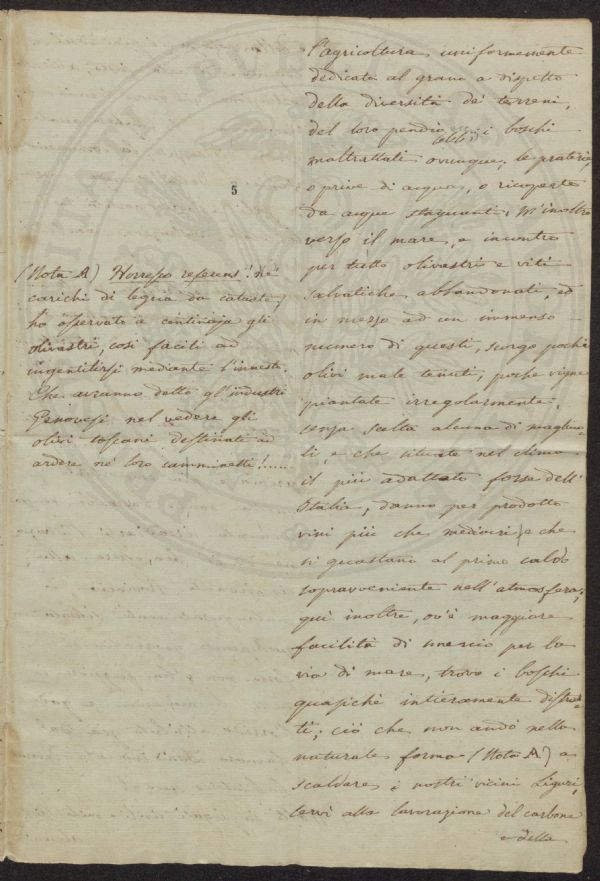 l'agricoltura, uniformemente
dedicata al grano a dispetto
della diversità de' terreni,
del loro pendio &c; i boschi
maltrattati ovunque, le praterie
o prive di acqua, o ricoperte
da acque stagnanti. M'inoltro
verso il mare, e incontro
per tutto olivastri e viti
salvatiche abbandonati, ed
in mezzo ad un immenso
numero di questi, scorgo pochi
olivi male tenuti, poche vigne
piantate irregolarmente,
senza scelta alcuna di magliuo-
li, e che situate nel clima
il più adattato forse dell'
Italia, danno per prodotto
vini più che mediocri, e che
si guastano al primo caldo
sopravveniente nell'atmosfera;
quì inoltre, ov'è maggiore
facilità di smercio per la
via di mare, trovo i boschi
quasichè intieramente distrut-
ti; ciò che non andò nella
naturale forma (Nota A) a
scaldare i nostri vicini Liguri,
servì alla lavorazione del carbone
e della
5
(Nota A) Horresco referens! ne'
carichi di legna da cataste,
ho osservato a centinaja gli
olivastri, così facili ad
ingentilirsi mediante l'innesto.
Che avranno detto gl'industri
Genovesi nel vedere gli
olivi toscani destinati ad
ardere ne' loro camminetti!......